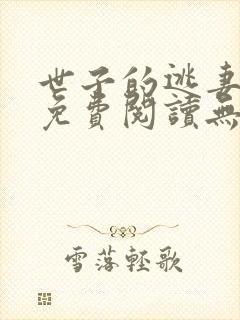 世子的逃妻
免費閱讀無
雪落輕歌